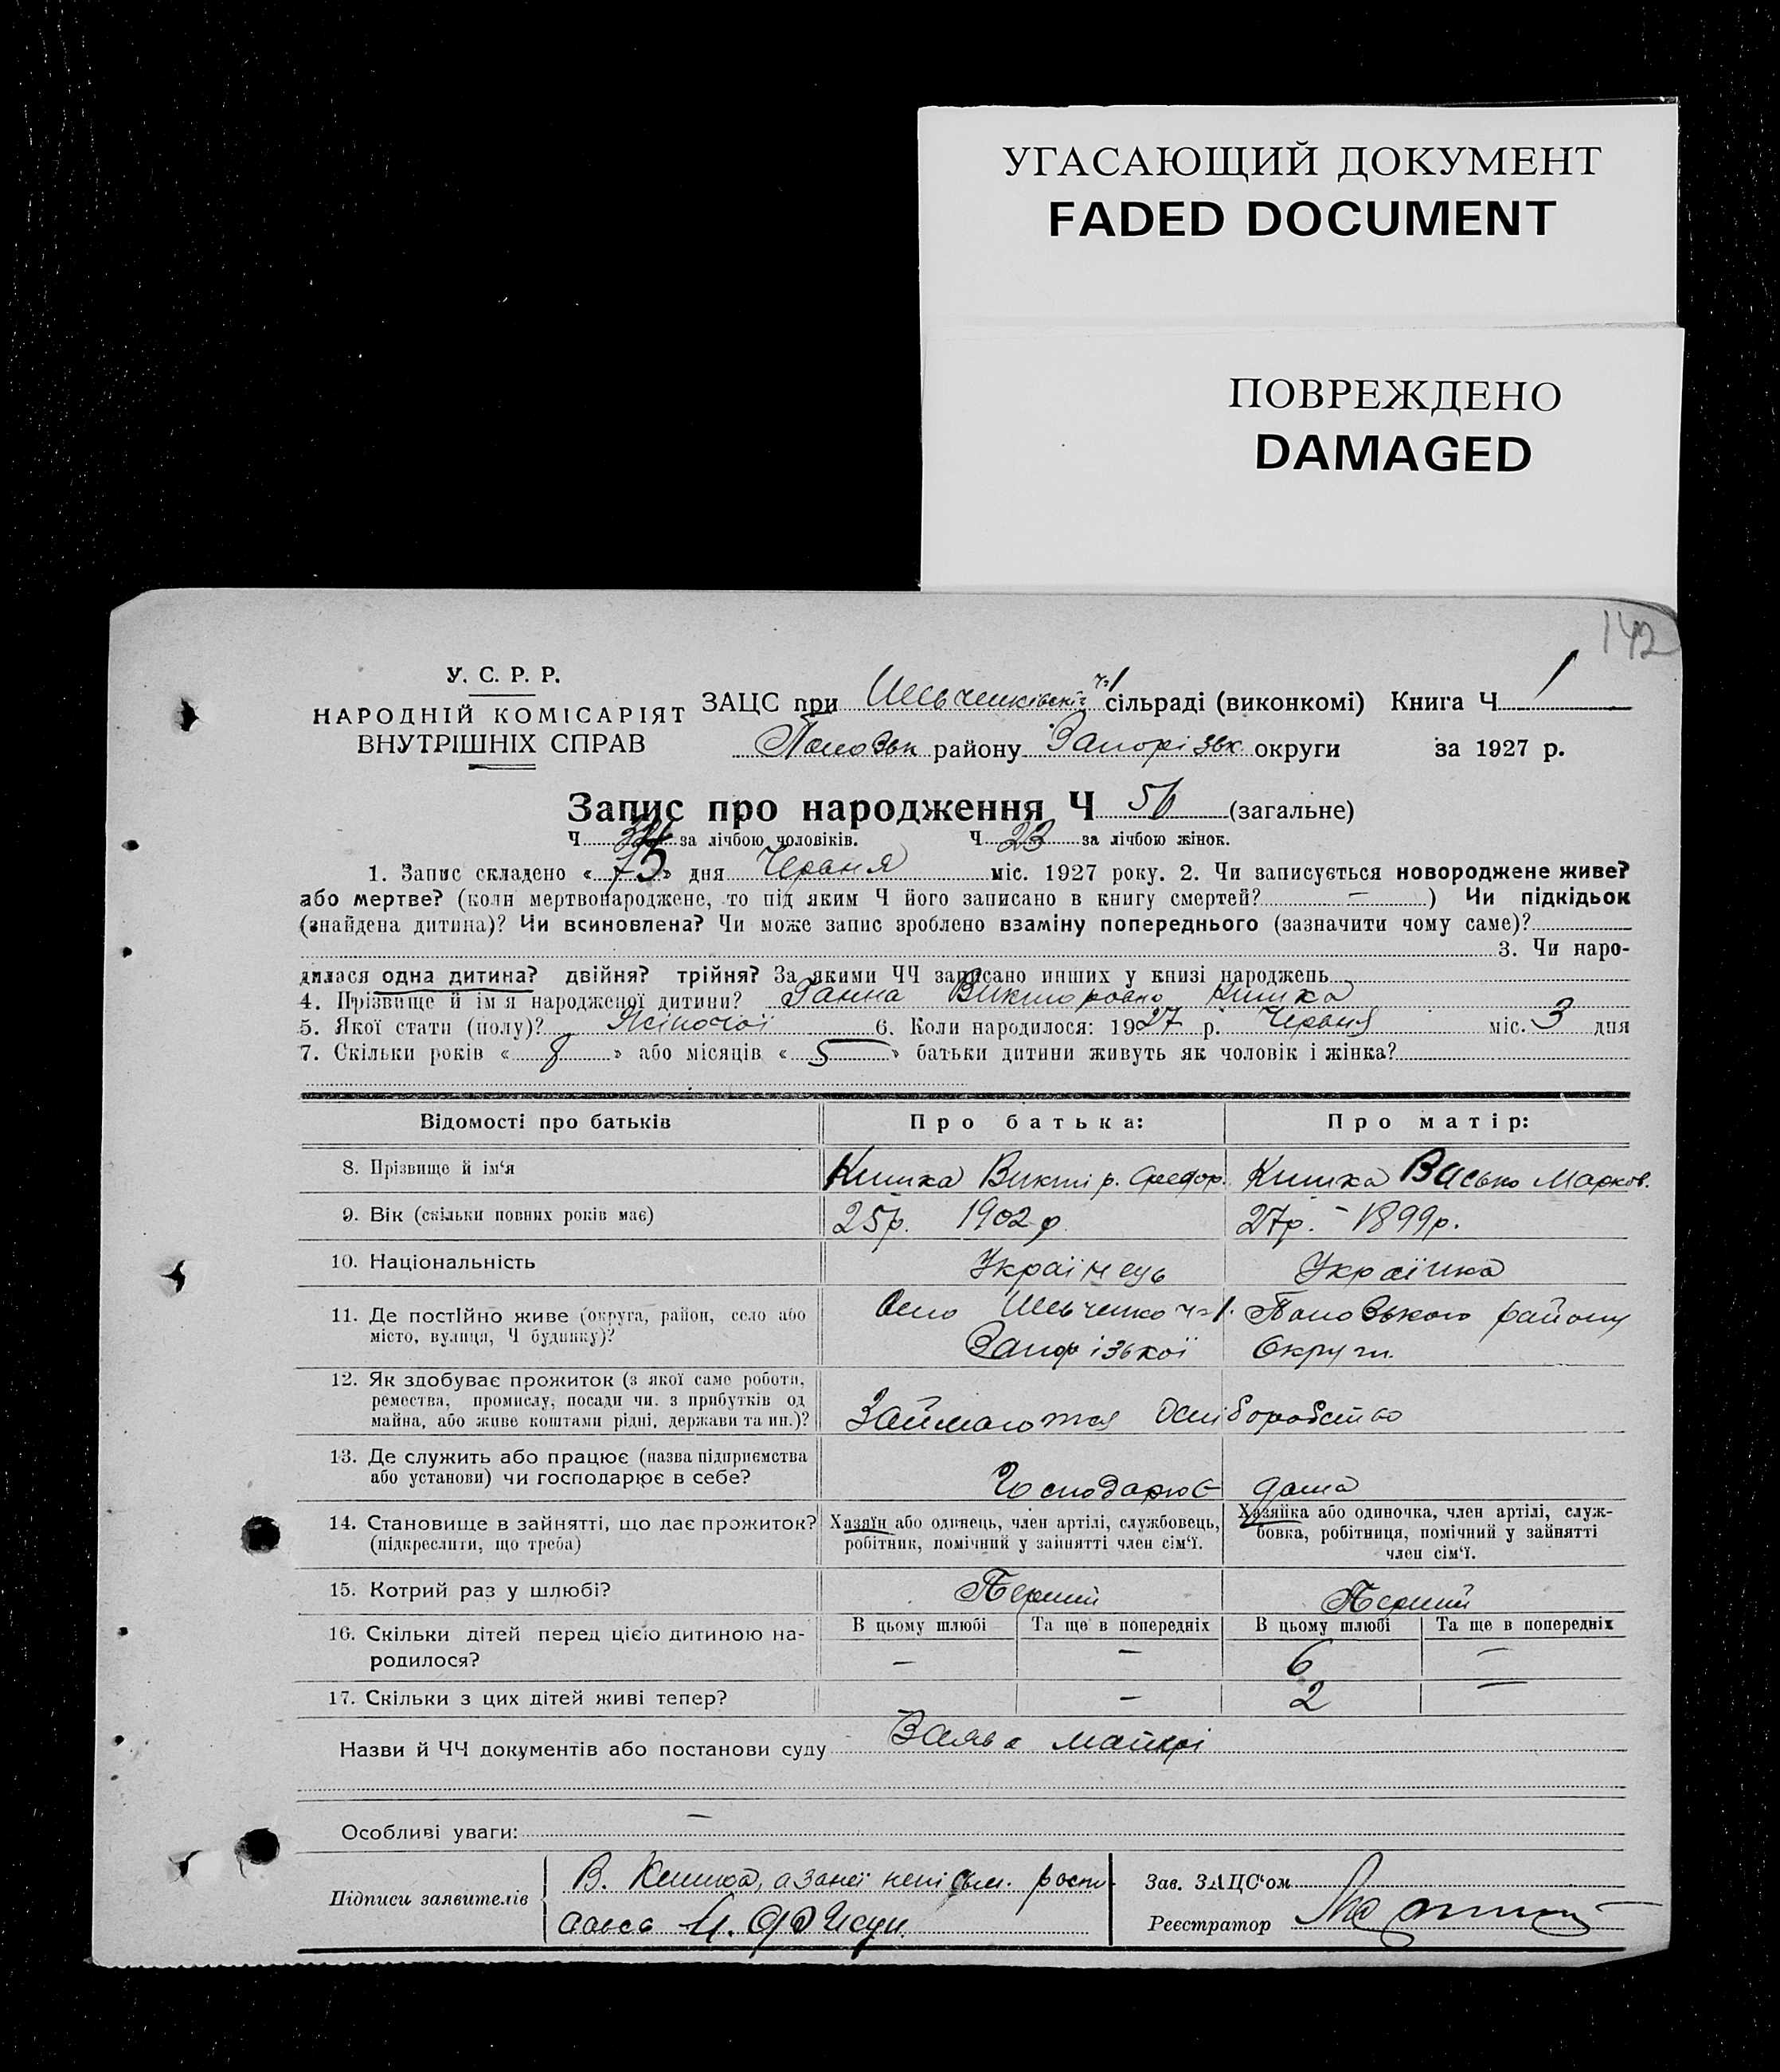 УГАСАЮЩИЙ ДОКУМЕНТ
FADED DOCUMENT
ПОВРЕЖДЕНО
DAMAGED
142
У. С. Р. Р.
НАРОДНІЙ КОМІСАРІЯТ
ВНУТРІШНІХ СПРАВ
ЗАЦС при Шевченківскій ч=1 сільраді (виконкомі) Книга Ч 1
району Запорізьк округи за 1927 р.
Запис про народження Ч 56 (загальне)
Ч за лічбою чоловіків. Ч 23 за лічбою жінок.
1. Запис складено « » дня Червня міс. 1927 року. 2. Чи записується новороджене живе?
або мертве? (коли мертвонароджене, то під яким Ч його записано в книгу смертей? — ) Чи підкідьок
(знайдена дитина)? Чи всиновлена? Чи може запис зроблено взаміну попереднього (зазначити чому саме)?
3. Чи наро-
дилася одна дитина? двійня? трійня? За якими ЧЧ записано инших у книзі народжень
4. Прізвище й ім'я народженої дитини? Ганна Викторовно Кишка
5. Якої стати (полу)? Жіночої 6. Коли народилося: 1927 р. Червня міс. 3 дня
7. Скільки років « 8 » або місяців « 5 » батьки дитини живуть як чоловік і жінка?
Відомості про батьків
Про батька:
Про матір:
8. Прізвище й ім'я
Кишка Виктір. Федор.
Кишка Васько Марков.
9. Вік (скільки повних років має)
25р. 1902 р
27р. - 1899р.
10. Національність
Українець
Українка
11. Де постійно живе (округа, район, село або
місто, вулиця, Ч будинку)?
Село Шевченко ч=1. району
Запорізької Округи.
12. Як здобуває прожиток (з якої саме роботи,
ремества, промислу, посади чи. з прибутків од
майна, або живе коштами рідні, держави та ин.)?
Займаються
13. Де служить або працює (назва підприємства
або установи) чи господарює в себе?
Господарює дома
14. Становище в зайнятті, що дає прожиток?
(підкреслити, що треба)
Хазяїн або одинець, член артілі, службовець,
робітник, помічний у зайнятті член сім'ї.
Хазяйка або одиночка, член артілі, служ-
бовка, робітниця, помічний у зайнятті
член сім'ї.
15. Котрий раз у шлюбі?
Перший
Перший
16. Скільки дітей перед цією дитиною на-
родилося?
В цьому шлюбі Та ще в попередніх В цьому шлюбі Та ще в попередніх
— — 6 —
17. Скільки з цих дітей живі тепер?
— 2 —
Назви й ЧЧ документів або постанови суду Заява матері
Особливі уваги: —
Підписи заявителів
В. Кишка, а занеї
Зав. ЗАЦС'ом
Реєстратор